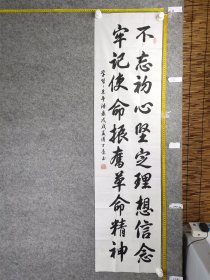 不忘初心坚定理想信念
牢记使命振奋革命精神